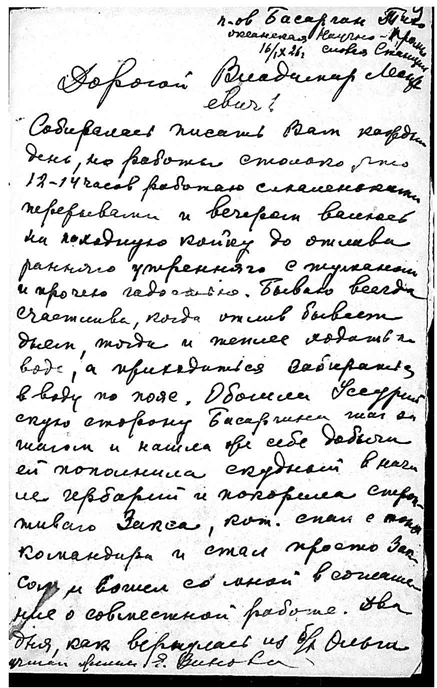 п-ов Басаргин Тихо
океанская Научно-Пром
словая Станция
16/IX 26 г.
Дорогой Владимир Леонт
евич!
Собиралась писать Вам каждый
день, но работы столько, что
12-14 часов работаю с маленькими
перерывами и вечером валюсь
на походную койку до отлива
раннего утреннего с туманом
и прочею гадостью. Бываю всегда
счастлива, когда отлив бывает
днем, тогда и теплее ходить по
воде, а приходиться забираться
в воду по пояс. Обошли Уссурий
скую сторону Басаргина шаг за
шагом и нашла себе добычи
ей пополнила скудный в нача
ле гербарий и покорила строп
тиваго Закса, кот. спал с тона
командира и стал просто Зак
сом и вошел со мной в соглаше
ние о совместной работе. Два
дня, как вернулась из б/х Ольги